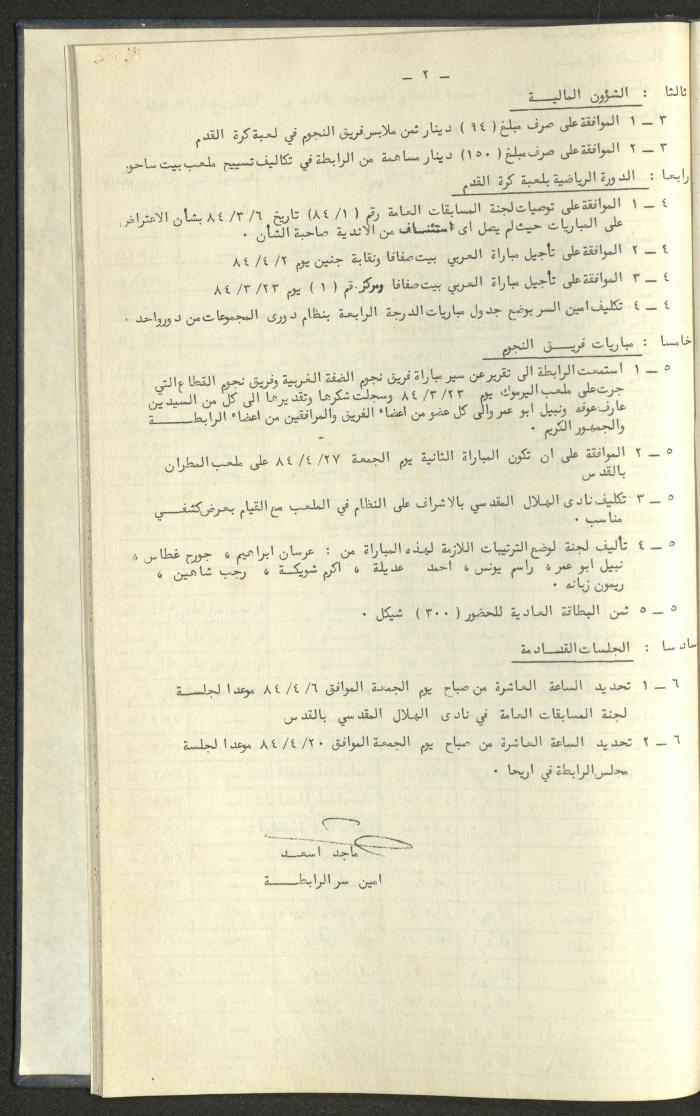 - ٢ -
ثالثا : الشؤون الماليـــة
٣ ــ ١ الموافقة على صرف مبلغ ( ٩٤ ) دينار ثمن ملابس فريق النجوم في لعبة كرة القدم
٣ ــ ٢ الموافقة على صرف مبلغ ( ١٥٠ ) دينار مساهمة من الرابطة في تكاليف تسييج ملعب بيت ساحور
رابعا : الدورة الرياضية بلعبة كرة القدم
٤ ــ ١ الموافقة على توصيات لجنة المسابقات العامة رقم ( ٨٤/١ ) تاريخ ٨٤/٣/٦ بشأن الاعتراض
على المباريات حيث لم يصل اى استئناف من الاندية صاحبة الشأن .
٤ ــ ٢ الموافقة على تأجيل مباراة العربي بيت صفافا ونقابة جنين يوم ٨٤/٤/٢
٤ ــ ٣ الموافقة على تأجيل مباراة العربي بيت صفافا ومركز رقم ( ١ ) يوم ٨٤/٣/٢٣
٤ ــ ٤ تكليف امين السر بوضع جدول مباريات الدرجة الرابعة بنظام دورى المجموعات من دور واحد .
خامسا : مباريات فريــق النجوم
٥ ــ ١ استمعت الرابطة الى تقرير عن سير مباراة فريق نجوم الضفة الغربية وفريق نجوم القطاع التي
جرت على ملعب اليرموك يوم ٨٤/٣/٢٣ وسجلت شكرها وتقديرها الى كل من السيدين
عارف عوفه ونبيل ابو عمر والى كل عضو من اعضاء الفريق والمرافقين من اعضاء الرابطــــة
والجمهور الكريم .
٥ ــ ٢ الموافقة على ان تكون المباراة الثانية يوم الجمعة ٨٤/٤/٢٧ على ملعب المطران
بالقدس
٥ ــ ٣ تكليف نادى الهلال المقدسي بالاشراف على النظام في الملعب مع القيام بعرض كشفــي
مناسب .
٥ ــ ٤ تأليف لجنة لوضع الترتيبات اللازمة لهذه المباراة من : عرسان ابراهيم ، جورج غطاس ،
نبيل ابو عمر ، راسم يونس ، احمد عديلة ، اكرم شويكة ، رجب شاهين ،
ريمون زبانه .
٥ ــ ٥ ثمن البطاقة العادية للحضور ( ٣٠٠ ) شيكل .
سادسا : الجلسات القــادمة
٦ ــ ١ تحديد الساعة العاشرة من صباح يوم الجمعة الموافق ٨٤/٤/٦ موعدا لجلســة
لجنة المسابقات العامة في نادى الهلال المقدسي بالقدس
٦ ــ ٢ تحديد الساعة العاشرة من صباح يوم الجمعة الموافق ٨٤/٤/٢٠ موعدا لجلسة
مجلس الرابطة في اريحا .
ماجد اسعــد
امين سر الرابطــــة